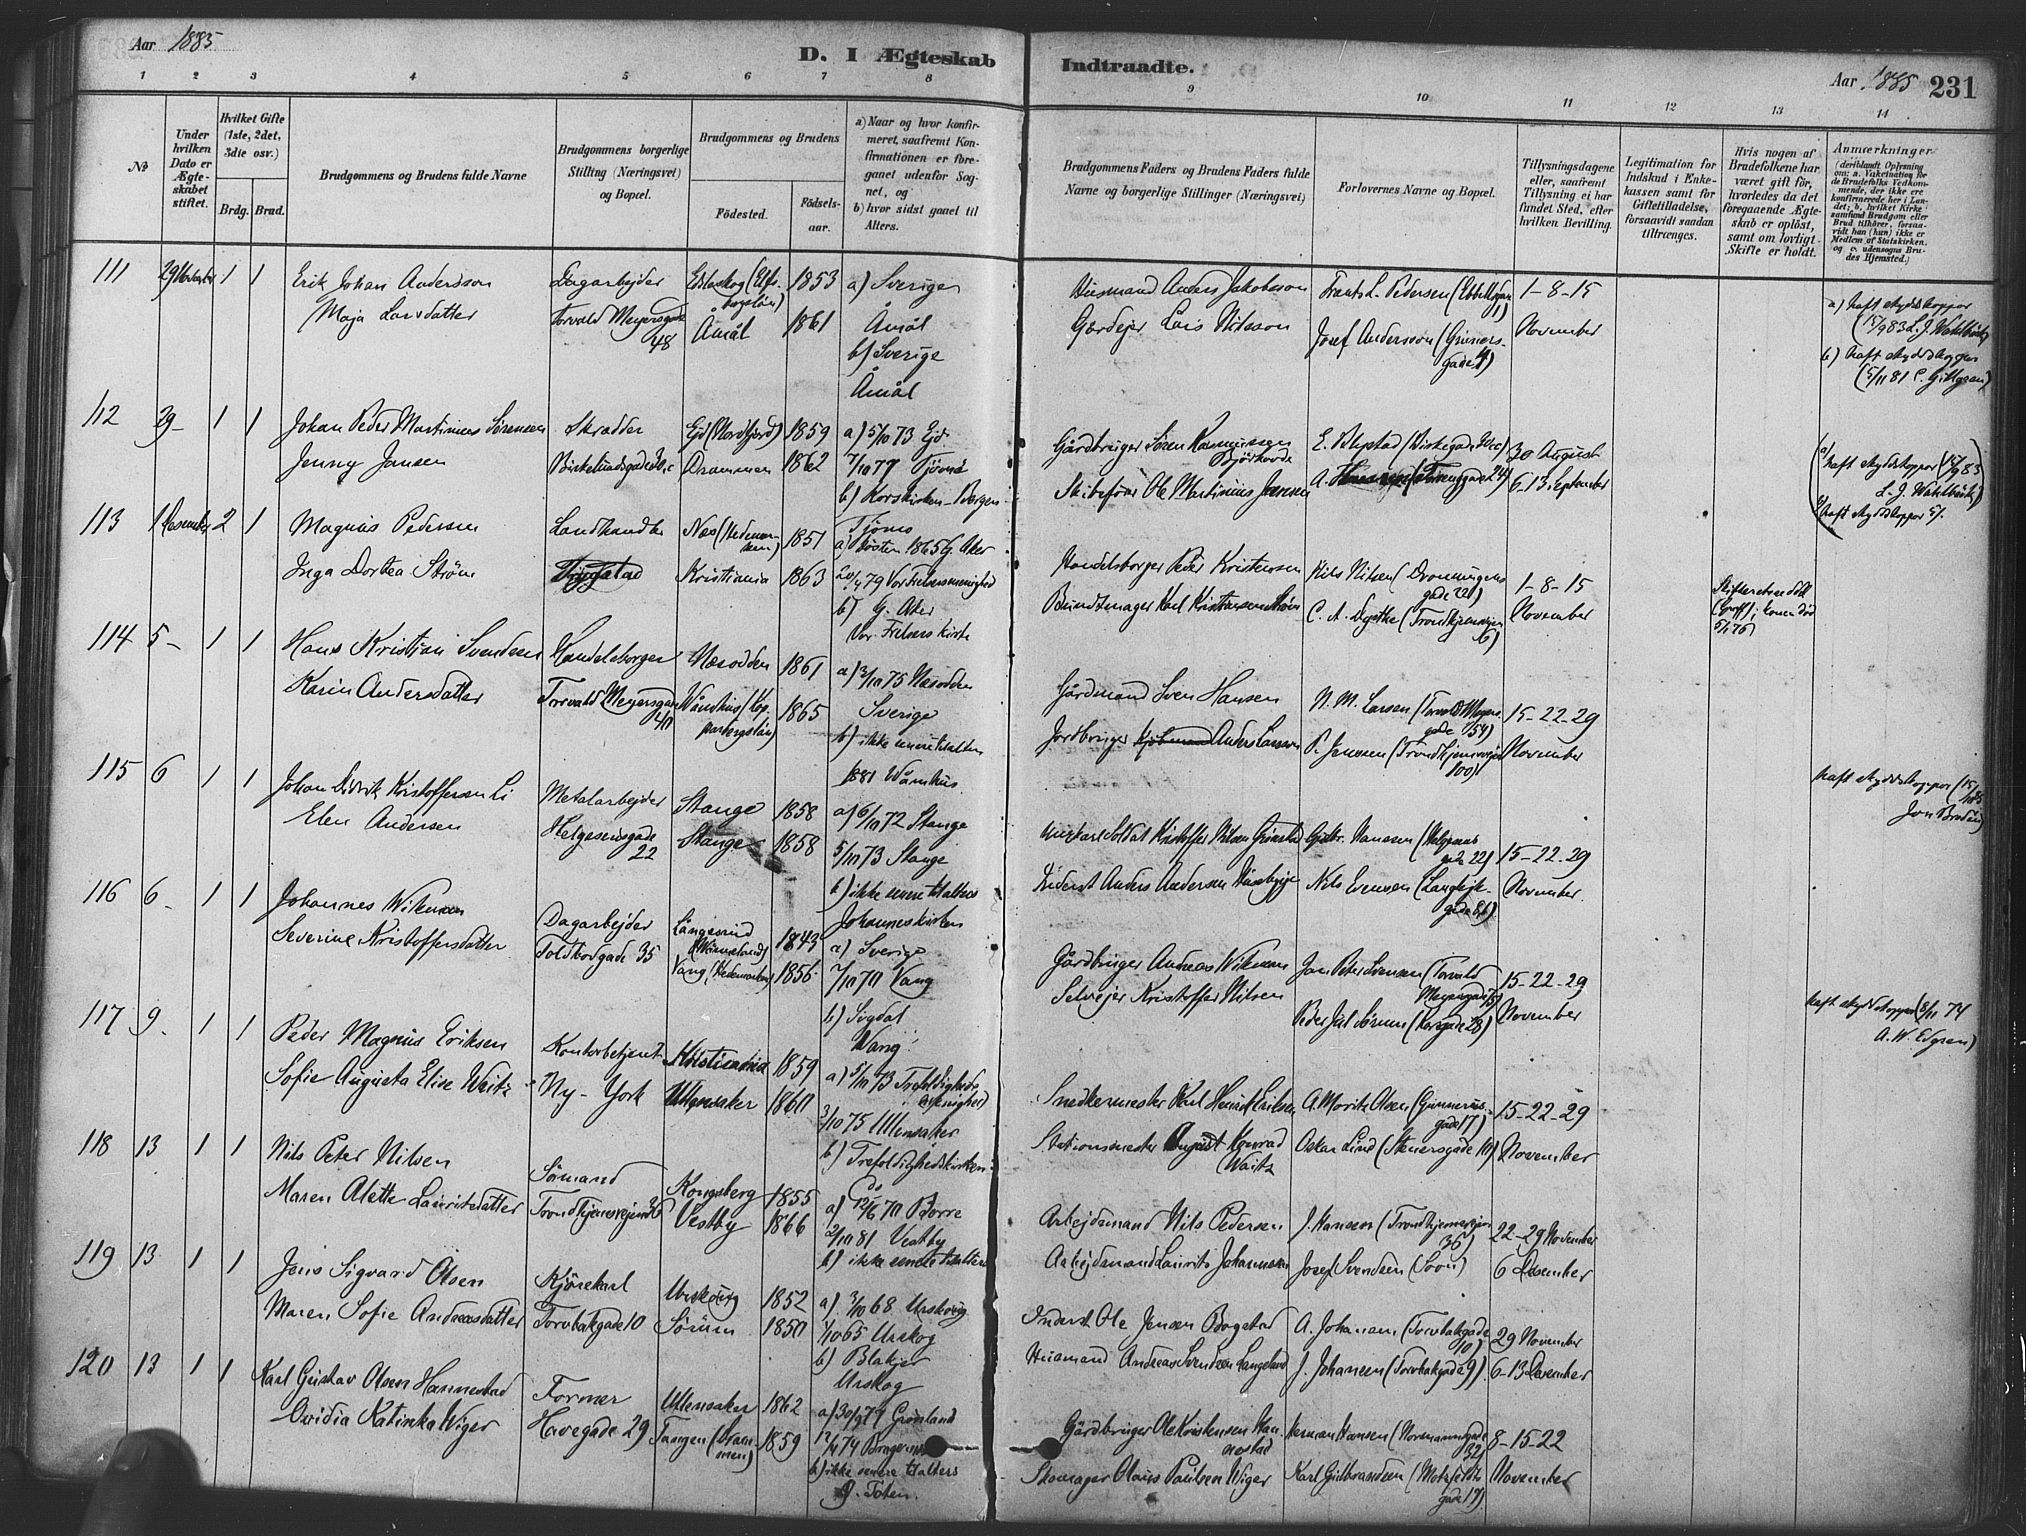 Aar 1885
D. I Ægteskab Indtraadte.
Aar 1885 231
1 2 3 4 5 6 7 8 9 10 11 12 13 14
№
Under hvilken Dato er Ægteskabet stiftet.
Hvilket Gifte (1ste, 2det, 3die osv.)
Brdg. Brud.
Brudgommens og Brudens fulde Navne
Brudgommens borgerlige Stilling (Næringsvei) og Bopæl.
Brudgommens og Brudens
Fødested.
Fødsels-aar.
a) Naar og hvor konfirmeret, saafremt Konfirmationen er foregaaet udenfor Sognet, og
b) hvor sidst gaaet til Alters.
Brudgommens Faders og Brudens Faders fulde Navne og borgerlige Stillinger (Næringsvei)
Forlovernes Navne og Bopæl.
Tillysningsdagene eller, saafremt Tillysning ei har fundet Sted, efter hvilken Bevilling.
Legitimation for Indskud i Enkekassen samt for Giftetilladelse, forsaavidt saadan tiltrænges.
Hvis nogen af Brudefolkene har været gift før, hvorledes da det foregaaende Ægteskab er opløst, samt om lovligt Skifte er holdt.
Anmærkninger
(deriblandt Oplysning om: a. Vakcination for de Brudefolks Vedkommende, der ikke ere konfirmerede her i Landet; b. hvilket Kirkesamfund Brudgom eller Brud tilhører, forsaavidt han (hun) ikke er Medlem af Statskirken, og c. udensogns Brudes Hjemsted.)
111 29 November 1 1 Erik Johan Andersson Dagarbejder 1853 a) Sverige
Maja Larsdatter Torvald Meyersgade 48 Åmål 1861 Åmål
b) Sverige
Åmål
Husmand Anders Jakobsson 1-8-15
Gårdejer Lars Nilsson Josef Andersson November
a) haft skyddskoppor
b) haft skyddskoppor
112 29- 1 1 Johan Peder Martinius Sørensen Skrædder Ejd (Nordfjord) 1859 a) 5/10 73 Ejd
Jenny Jansen Drammen 1862 7/10 77 Tjømø
b) Korskirken Bergen
Tjømø
Gårdbruger Søren Rasmussen 30 August
Skibsfører Ole Martinius Jansen 6-13 September
113 1 Desember 2 1 Magnus Pedersen Landhandler Næs (Hedemarken) 1851 1865 G. Aker
Inga Dortea Strøm Kristiania 1863 20/4 79 Vor Frelsers menighed
b) G. Aker
Vor Frelsers kirke
Handelsborger Peder Kristensen Nils Nilsen (Dronningens gade 22) 1-8-15
Bundtmager Karl Kristiansen Strøm November
114 5- 1 1 Hans Kristian Svendsen Handelsborger Næsodden 1861 a) 3/10 75 Næsodden
Karin Andersdatter Torvald Meyersgade (Kopparbergslän) 1865 Sverige
b) ikke senere til alters
1881 Våmhus
Gårdmand Sven Hansen N. M. Larsen (Torvald Meyersgade 54) 15-22-29
Jordbruger Anders Larsson P. Jenssen (Trondhjemsvejen 100) November
haft skyddskoppor
115 6 1 1 Johan Didrik Kristoffersen Li Metalarbejder Stange 1858 a) 6/10 72 Stange
Elen Andersen Helgesensgade 22 Stange 1858 5/10 73 Stange
b) ikke senere til alters
Johanneskirken
Kristoffer Nilsen 15-22-29
Inderst Anders Andersen Nils Evensen November
116 6- 1 1 Johannes Wikman Dagarbejder (Värmeland) 1843 a) Sverige
Severine Kristoffersdatter Toldbodgade 35 Vang (Hedemarken) 1856 7/10 70 Vang
b) Sigdal
Vang
Gårdbruger Andreas Wikman Jan Peter Svensen (Torvald Meyersgade 15-22-29
Selvejer Kristoffer Nilsen November
haft skyddskoppor (8/11 74
A. W. Edgren)
117 9. 1 1 Peder Magnus Eriksen Kontorbetjent Kristiania 1859 a) 5/10 73 Trefoldigheds menighed
Sofie Augusta Elise Waitz Ny-York Ullensaker 1860 3/10 75 Ullensaker
b) Trefoldighedskirken
do
Snedkermester Karl Henrik Eriksen A. Moritz Olsen (Gunnerusgade 17) 15-22-29
Stationsmester August Konrad Waitz Oskar Lund (Stenersgade 10) November
118 13 1 1 Nils Peter Nilsen Sømand Kongsberg 1855 a) 12/6 70 Borre
Maren Alette Lauritsdatter Trondhjemsvejen 36 Vestby 1866 2/10 81 Vestby
b) ikke senere til alters
Arbejdsmand Nils Pedersen J. Hansen (Trondhjemsvejen 36) 22-29 November
Arbejdsmand Laurits Johannesen Josef Svendsen (Soon) 6 Desember
119 13 1 1 Jens Sigvard Olsen Kjørekarl Urskoug 1852 a) 3/10 68 Urskoug
Maren Sofie Andreasdatter Torvbakgade 10 Sørum 1850 1/10 65 Urskog
b) Blakjer
Urskog
Inderst Ole Jensen Bogstad A. Johansen (Torvbakgade 10) 29 November
Husmand Andreas Svendsen Langeland J. Johansen (Torvbakgade 9) 6-13 Desember
120 13 1 1 Karl Gustav Olsen Hannestad Former Ullensaker 1862 a) 30/9 77 Grønland
Ovidia Katinka Wiger Havegade 29 Tangen (Drammen) 1859 12/4 74 Bragernes
b) ikke senere til alters
Ø. Toten.
Gårdbruger Ole Kristensen Hannestad Herman Hansen (Normannsgade 32) 8-15-22
Skomager Olaus Paulsen Wiger Karl Gulbrandsen (Motzfeldtsgade 17) November